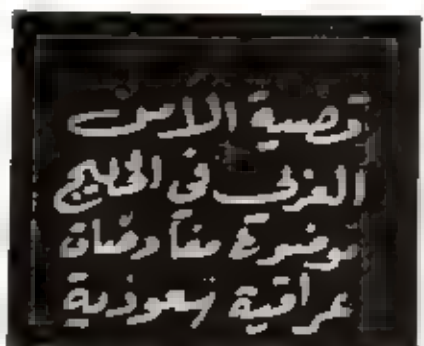 قضية الأمن
العربي في الخليج
موضوع مفاوضات
عراقية سعودية